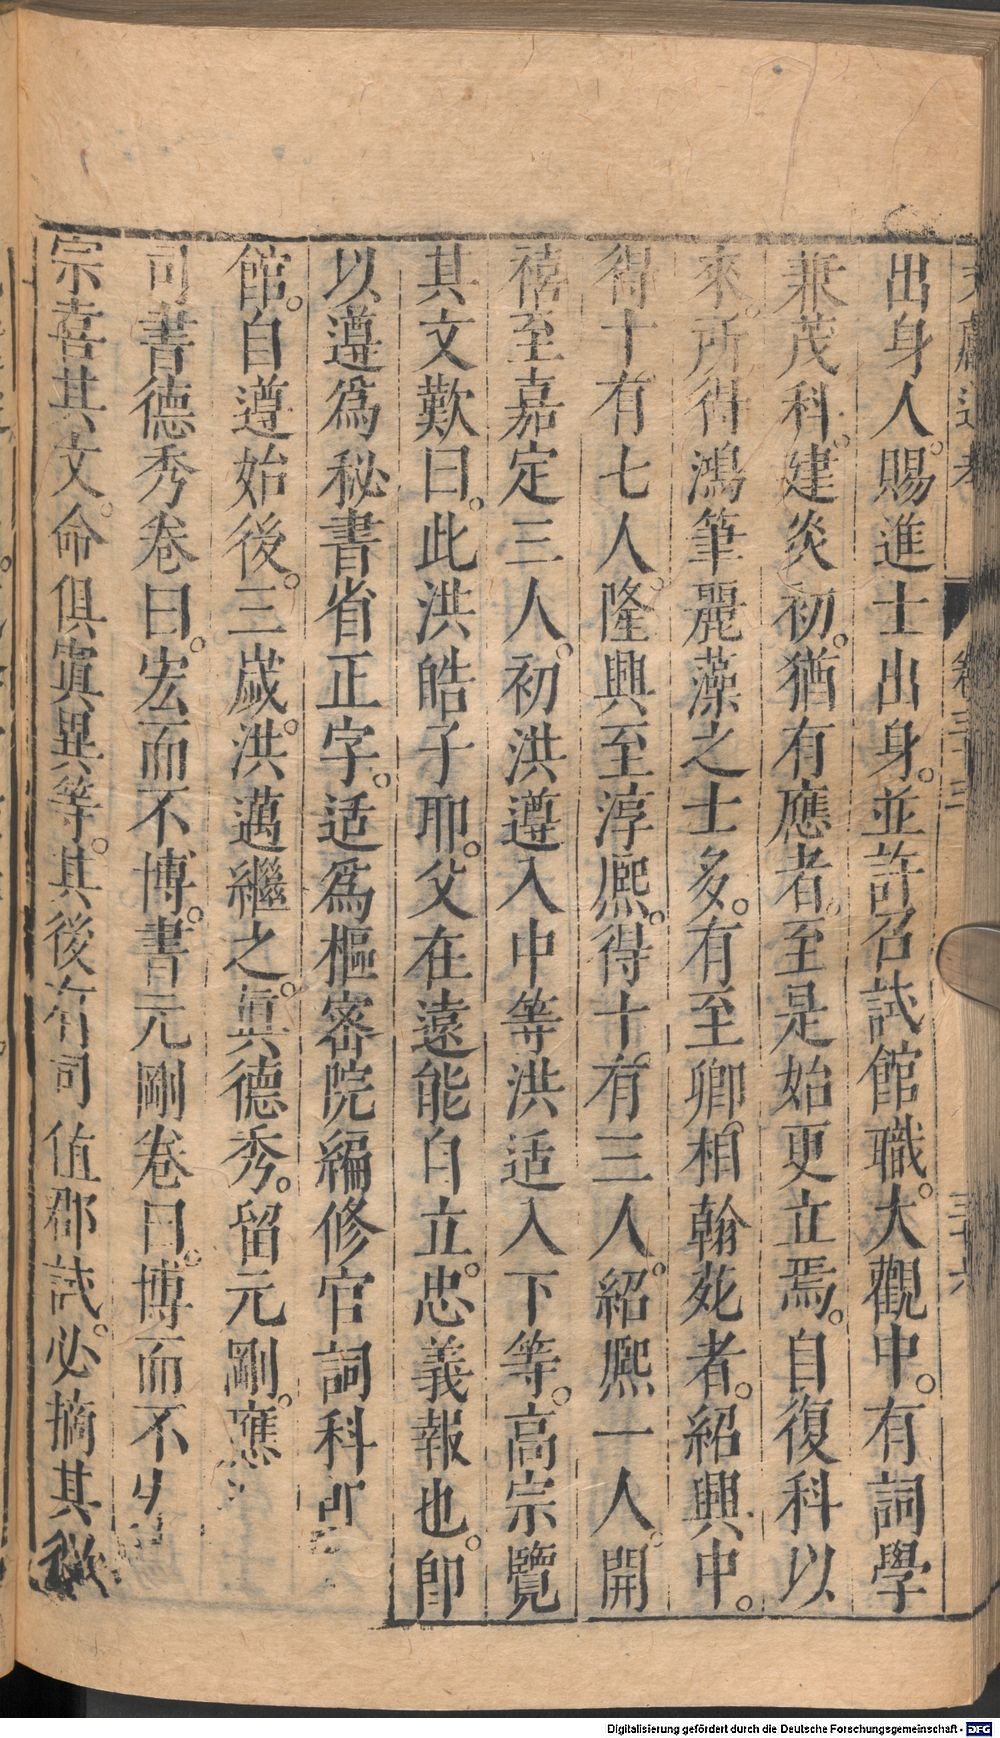 文獻通考 卷三十三 三十六
出身人。賜進士出身。並許召試館職。大觀中。有詞學
兼茂科。建炎初。猶有應者。至是始更立焉。自復科以
來。所得鴻筆麗藻之士多。有至卿相翰苑者。紹興中。
得十有七人。隆興至淳熈。得十有三人。紹熈一人。開
禧至嘉定三人。初洪遵入中等洪适入下等。高宗覽
其文歎曰。此洪皓子耶。父在遠能自立。忠義報也。卽
以遵爲秘書省正字。适爲樞密院編修官詞科卽
館。自遵始後。三歲。洪邁繼之。眞德秀。留元剛。應
司書德秀卷曰。宏而不博。書元剛卷曰。博而不
宗喜其文。命俱寘異等。其後有司值郡試。必摘其
Digitalisierung gefördert durch die Deutsche Forschungsgemeinschaft - DFG